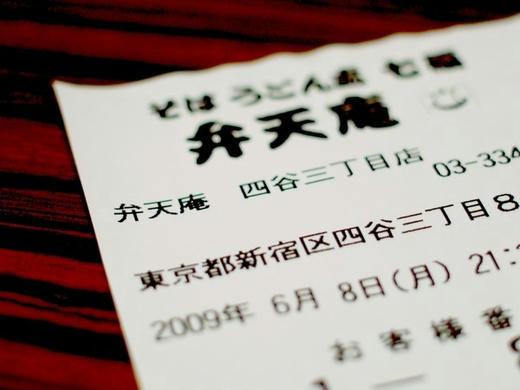 そば うどん
弁天庵
弁天庵 四谷三丁目店 03-334
東京都新宿区四谷三丁目8
2009年 6月 8日(月) 21:
お客様番